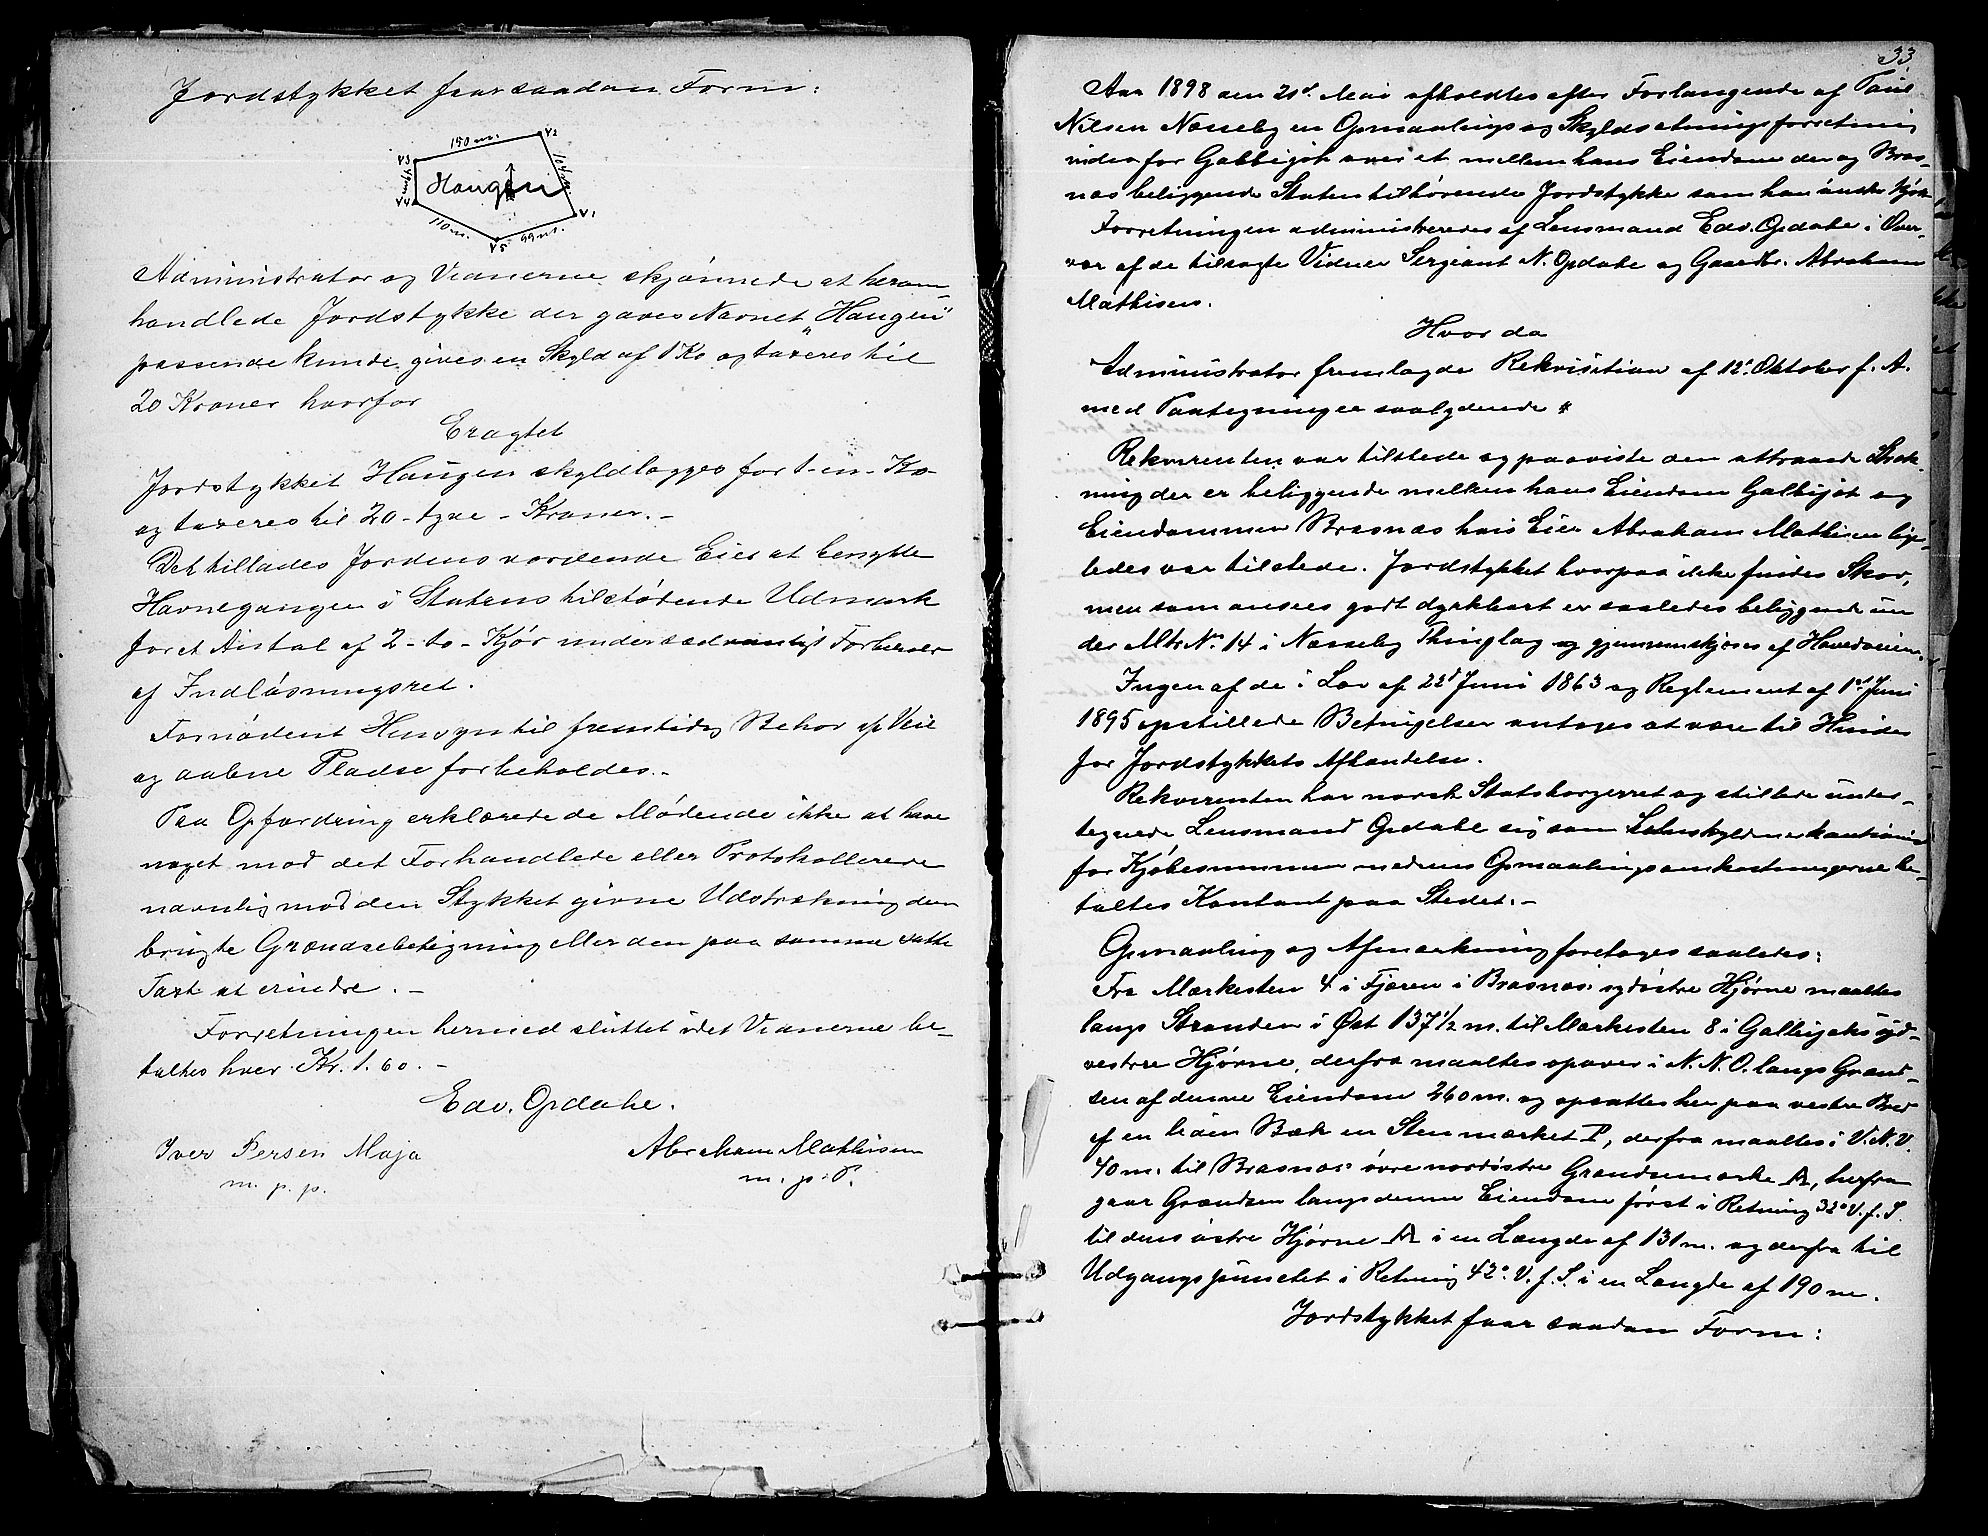 Jordstykket faar saadan Form:
150 m.
V2
V3
Haugen
V4
V1
110 m.
V5
99 m.
Administrator og Vidnerne skjønnede at herom-
handlede Jordstykke der gaves Navnet „Haugen"
passende kunde gives en Skyld af 1 Ko og taxeres til
20 Kroner hvorfor
Eragtet
Jordstykket Haugen skyldlægges for 1-en-Ko-
og taxeres til 20-tyve-Kroner.-
Det tillades Jordens vordende Eier at benytte
Havnegangen i Statens tilstødende Udmark
for et Antal af 2-to-Kjør under sædvanligt Forbehold
af Indløsningsret.
Fornødent Hensyn til fremtidig Behov af Veie
og aabne Pladse forbeholdes.-
Paa Opfordring erklærede de Mødende ikke at have
noget mod det Forhandlede eller Protokollerede
navnlig mod den Stykket givne Udstrækning den
brugte Grændsebetegning eller den paa samme satte
Taxt at erindre.-
Forretningen hermed sluttet idet Vidnerne be-
taltes hver Kr. 1.60.-
Edv. Opdahl.
Iver Persen Maja
m. p. p.
Abraham Mathisen
m. p. P.
33
Aar 1898 den 21d. Mai afholdtes efter Forlangende af Paul
Nilsen Næsseby en Opmaalings og Skyldsætningsforretning
indenfor Galbigjok over et mellem hans Eiendom der og Bras-
næs beliggende Staten tilhørende Jordstykke som han ønsker kjøbt
Forretningen administreredes af Lensmand Edv. Opdahl i Over-
vær af de tilsagte Vidner Sergeant N. Opdahl og Gaardbr. Abraham
Mathisen.
Hvor da
Administrator fremlagde Rekvisition af 12t. Oktober f. A.
med Paategninger saalydende #
Rekvirenten var tilstede og paaviste den attraaede Stræk-
ning der er beliggende mellem hans Eiendom Galbigjok og
Eiendommen Brasnæs hvis Eier Abraham Mathisen lige-
ledes var tilstede. Jordstykket hvorpaa ikke findes Skov,
men som ansees godt dyrkbart er saaledes beliggende un
der Mtr. No. 14 i Næsseby Thinglag og gjennemskjæres af Hovedveien.
Ingen af de i Lov af 22d Juni 1863 og Reglement af 1ste Juni
1895 opstillede Betingelser antoges at være til Hinder
for Jordstykkets Afhændelse.
Rekvirenten har norsk Statsborgerret og stillede under-
tegnede Lensmand Opdahl sig som Selvskyldnerkautionist
for Kjøbesummen medens Opmaalingsomkostningerne be-
taltes Kontant paa Stedet.-
Opmaaling og Afmærkning foretoges saaledes:
Fra Mærkesten 4 i Fjæren i Brasnæs' sydøstre Hjørne maaltes
langs Stranden i Øst 137 1/2 m. til Mærkesten 8 i Galbigjoks syd-
vestre Hjørne, derfra maaltes opover i N.N.O. langs Grænd-
sen af denne Eiendom 260 m. og opsattes her paa vestre Bred
af en liden Bæk en Sten mærket P, derfra maaltes i V.N.V.
40 m. til Brasnæs' øvre nordøstre Grændsemærke A, herfra
gaar Grændsen langs denne Eiendom først i Retning 32° V. f. S.
til dens østre Hjørne A i en Længde af 131 m. og derfra til
Udgangspunctet i Retning 42° V. f. S. i en Længde af 190 m.
Jordstykket faar saadan Form: